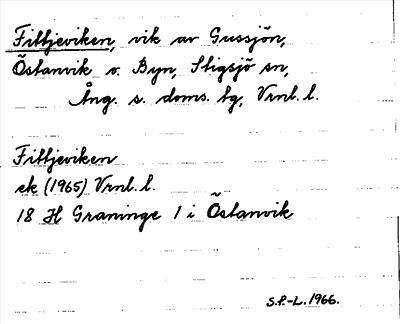 Fittjeviken, vik av Gussjön,
Östanvik o. Byn, Stigsjö sn,
Ång. s. doms. tg, Vrnl. l.
Fittjeviken
ek (1965) Vrnl. l.
18 H Graninge 1 i Östanvik
S.P.-L. 1966.